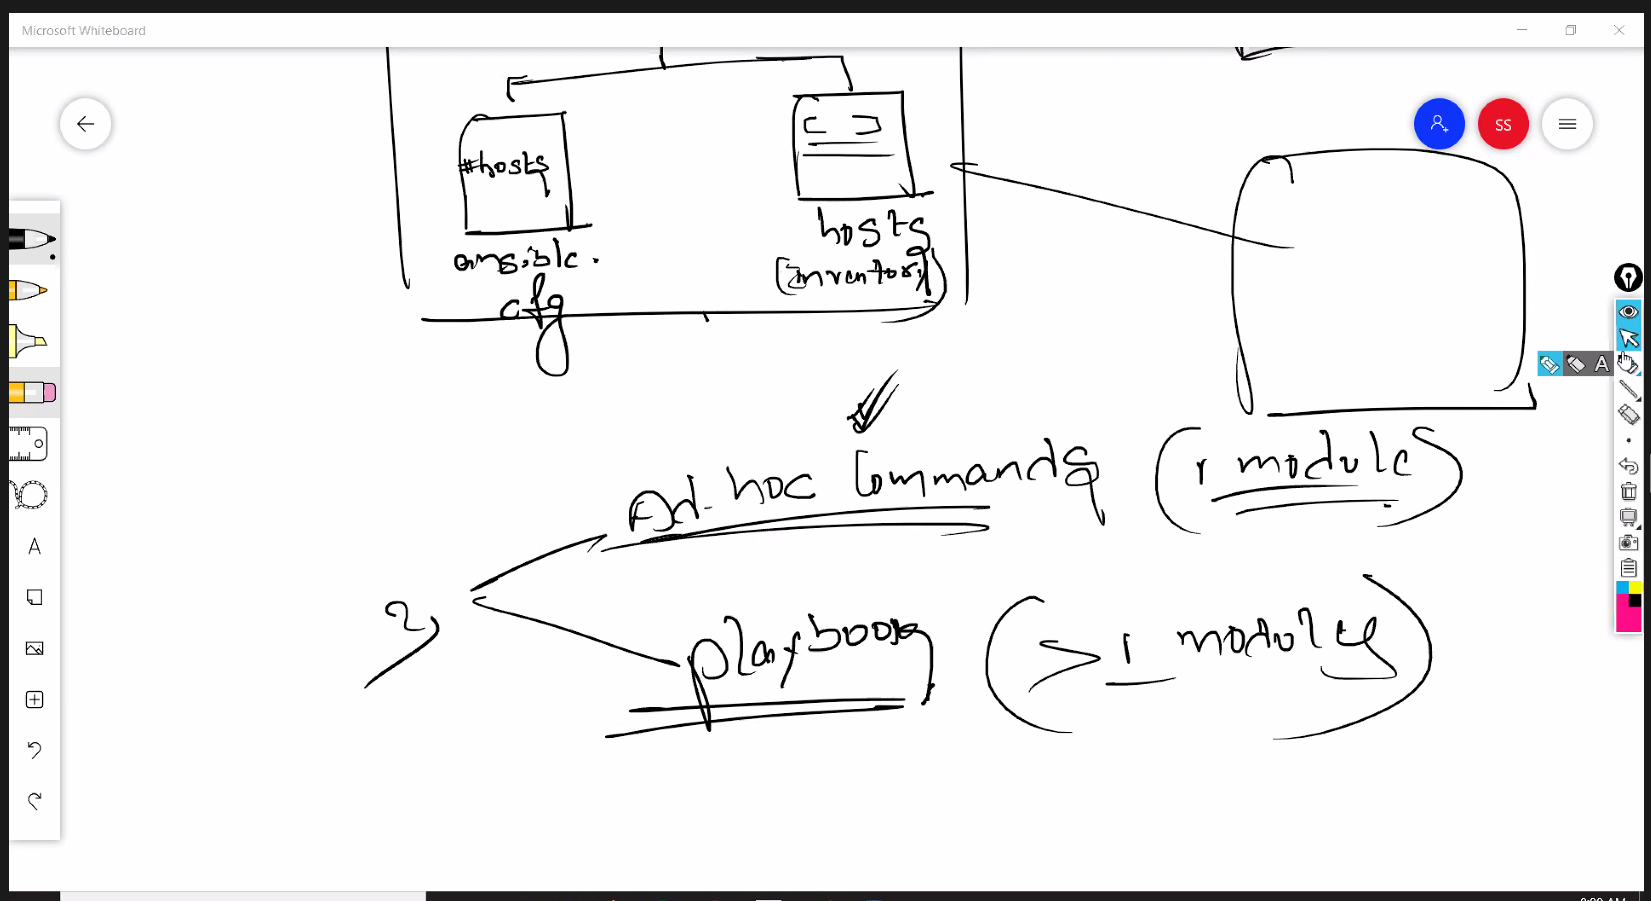 Microsoft Whiteboard
SS
#hosts
[ ]
ansible.
cfg
hosts
(inventory)
A
Ad-hoc Commands (1 module)
2)
playbooks (>1 modules)
A